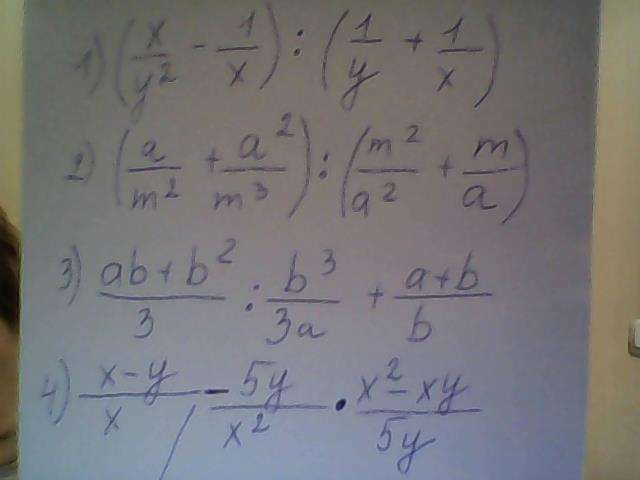 1) (x/y² - 1/x) : (1/y + 1/x)
2) (a/m² + a²/m³) : (m²/a² + m/a)
3) (ab+b²)/3 : b³/3a + (a+b)/b
4) (x-y)/x - 5y/x² · (x²-xy)/5y